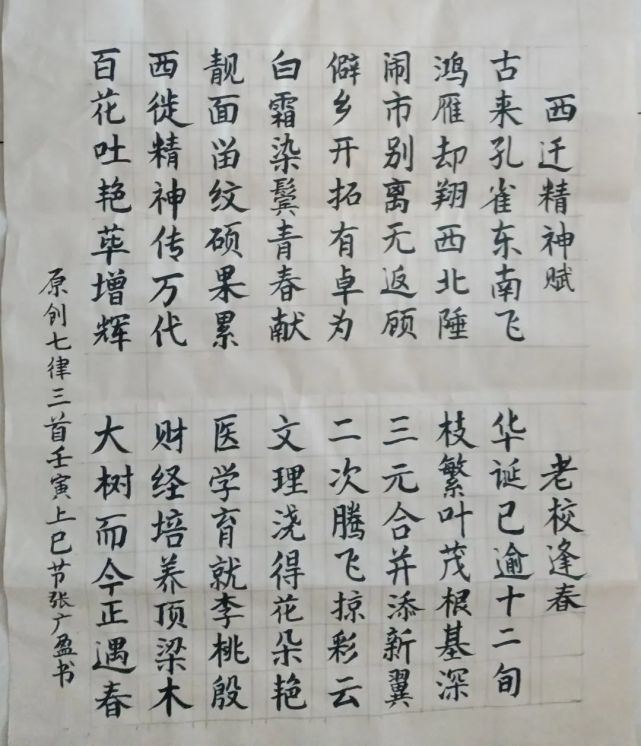 西迁精神赋
古来孔雀东南飞
鸿雁却翔西北陲
闹市别离无返顾
僻乡开拓有卓为
白霜染鬓青春献
靓面留纹硕果累
西徙精神传万代
百花吐艳莘增辉
老校逢春
华诞已逾十二旬
枝繁叶茂根基深
三元合并添新翼
二次腾飞掠彩云
文理浇得花朵艳
医学育就李桃殷
财经培养顶梁木
大树而今正遇春
原创七律三首壬寅上巳节张广盈书